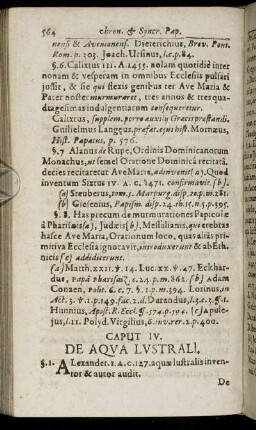 564 chron. & Syncr. Pap.
nensi & Avenionensi. Dieterichius, Brev. Pont.
Rom. p. 203. Joach. Ursinus, l.c. p. 84.
§. 6. Calixtus III. A. 1455. nolam quotidiè inter
nonam & vesperam in omnibus Ecclesiis pulsari
jussit, & sic qui flexis genibus ter Ave Maria &
Pater noster murmuraret, tres annos & tres qua-
dragesimas indulgentiarum consequeretur.
Calixtus, supplem. porro auxilii Græcis præstandi.
Gnilielmus Langeus, præfat. ejus hist. Mornæus,
Hist. Papatus, p. 576.
§. 7 Alanus de Rupe, Ordinis Dominicanorum
Monachus, ut semel Oratione Dominicâ recitatâ,
decies recitaretur Ave Maria, adinvenit (a). Quod
inventum Sixtus IV. A. C. 1471. confirmavit. (b).
(a) Steuberus, tom. 5. Marpurg. disp. 29. m. 281.
(b) Gisenius, Papism. disp. 24. th. 15. n. 5. p. 395.
§. 8. Has precum de murmurationes Papicolæ
à Pharisæis (a), Judæis (b), Messalianis, quæ crebras
hasce Ave Maria, Orationum loco, quavaliàs pri-
mitiva Ecclesia ignotavit, introduxerunt & ab Eth-
nicis (c) addidicerunt.
(a) Matth. XXII. v. 14. Luc. XX. v. 47. Eckhar-
dus, Papa Pharisaiz. l. 2. c. 5. p. m. 862. (b) Adam
Conzen, Polit. 6. c. 7. §. 1. p. m. 394. Lorinus, in
Act. 3. v. 1. p. 149. fac. 2. d. Durandus, l. 5. c. 5. §. 1.
Hunnius, Apost. R. Eccl. §. 574. p. 594. (c) Apule-
jus, l. 11. Polyd. Virgilius, 6. inv. rer. 2. p. 400.
CAPUT IV.
DE AQVA LVSTRALI.
§. 1. Alexander. 1. A. C. 127. aquæ lustralis inven-
tor & autor audit.
De